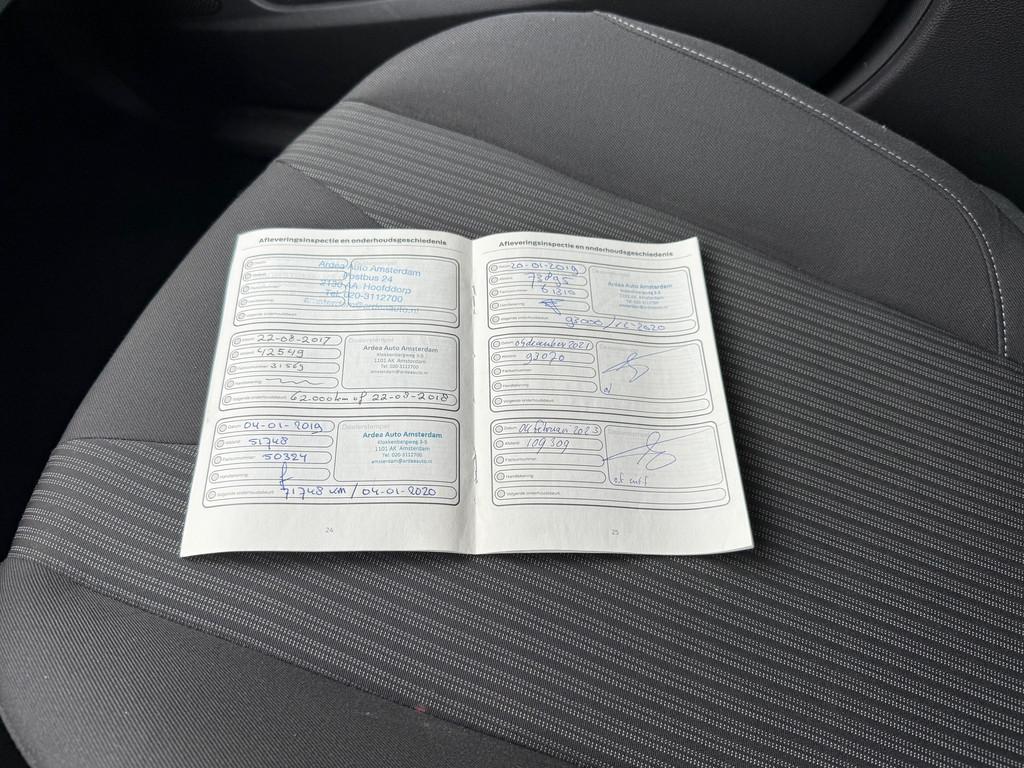 Afleveringsinspectie en onderhoudsgeschiedenis
Ardea Auto Amsterdam
Postbus 24
2130 AA Hoofddorp
Tel: 020-3112700
amsterdam@ardeaauto.nl
Volgende onderhoudsbeurt
Datum 22-08-2017
Dealerstempel
42549
31569
Ardea Auto Amsterdam
Klokkenbergweg 3-5
1101 AK Amsterdam
Tel. 020-3112700
amsterdam@ardeaauto.nl
Handtekening
Volgende onderhoudsbeurt 62.000km of 22-08-2018
Datum 04-01-2019
Dealerstempel
Afstand 51748
Factuurnummer 50324
Ardea Auto Amsterdam
Klokkenbergweg 3-5
1101 AK Amsterdam
Tel. 020-3112700
amsterdam@ardeaauto.nl
Handtekening
Volgende onderhoudsbeurt 71748 km / 04-01-2020
24
Afleveringsinspectie en onderhoudsgeschiedenis
Datum 20-01-2019
73895
61310
Ardea Auto Amsterdam
Klokkenbergweg 3-5
1101 AK Amsterdam
Tel. 020-3112700
amsterdam@ardeaauto.nl
Handtekening
Volgende onderhoudsbeurt 93000/
Datum 04 december 2021
Afstand 93070
Factuurnummer
Handtekening
Volgende onderhoudsbeurt
Datum 04 februari 2023
Afstand 109309
Factuurnummer
Handtekening
Volgende onderhoudsbeurt
25